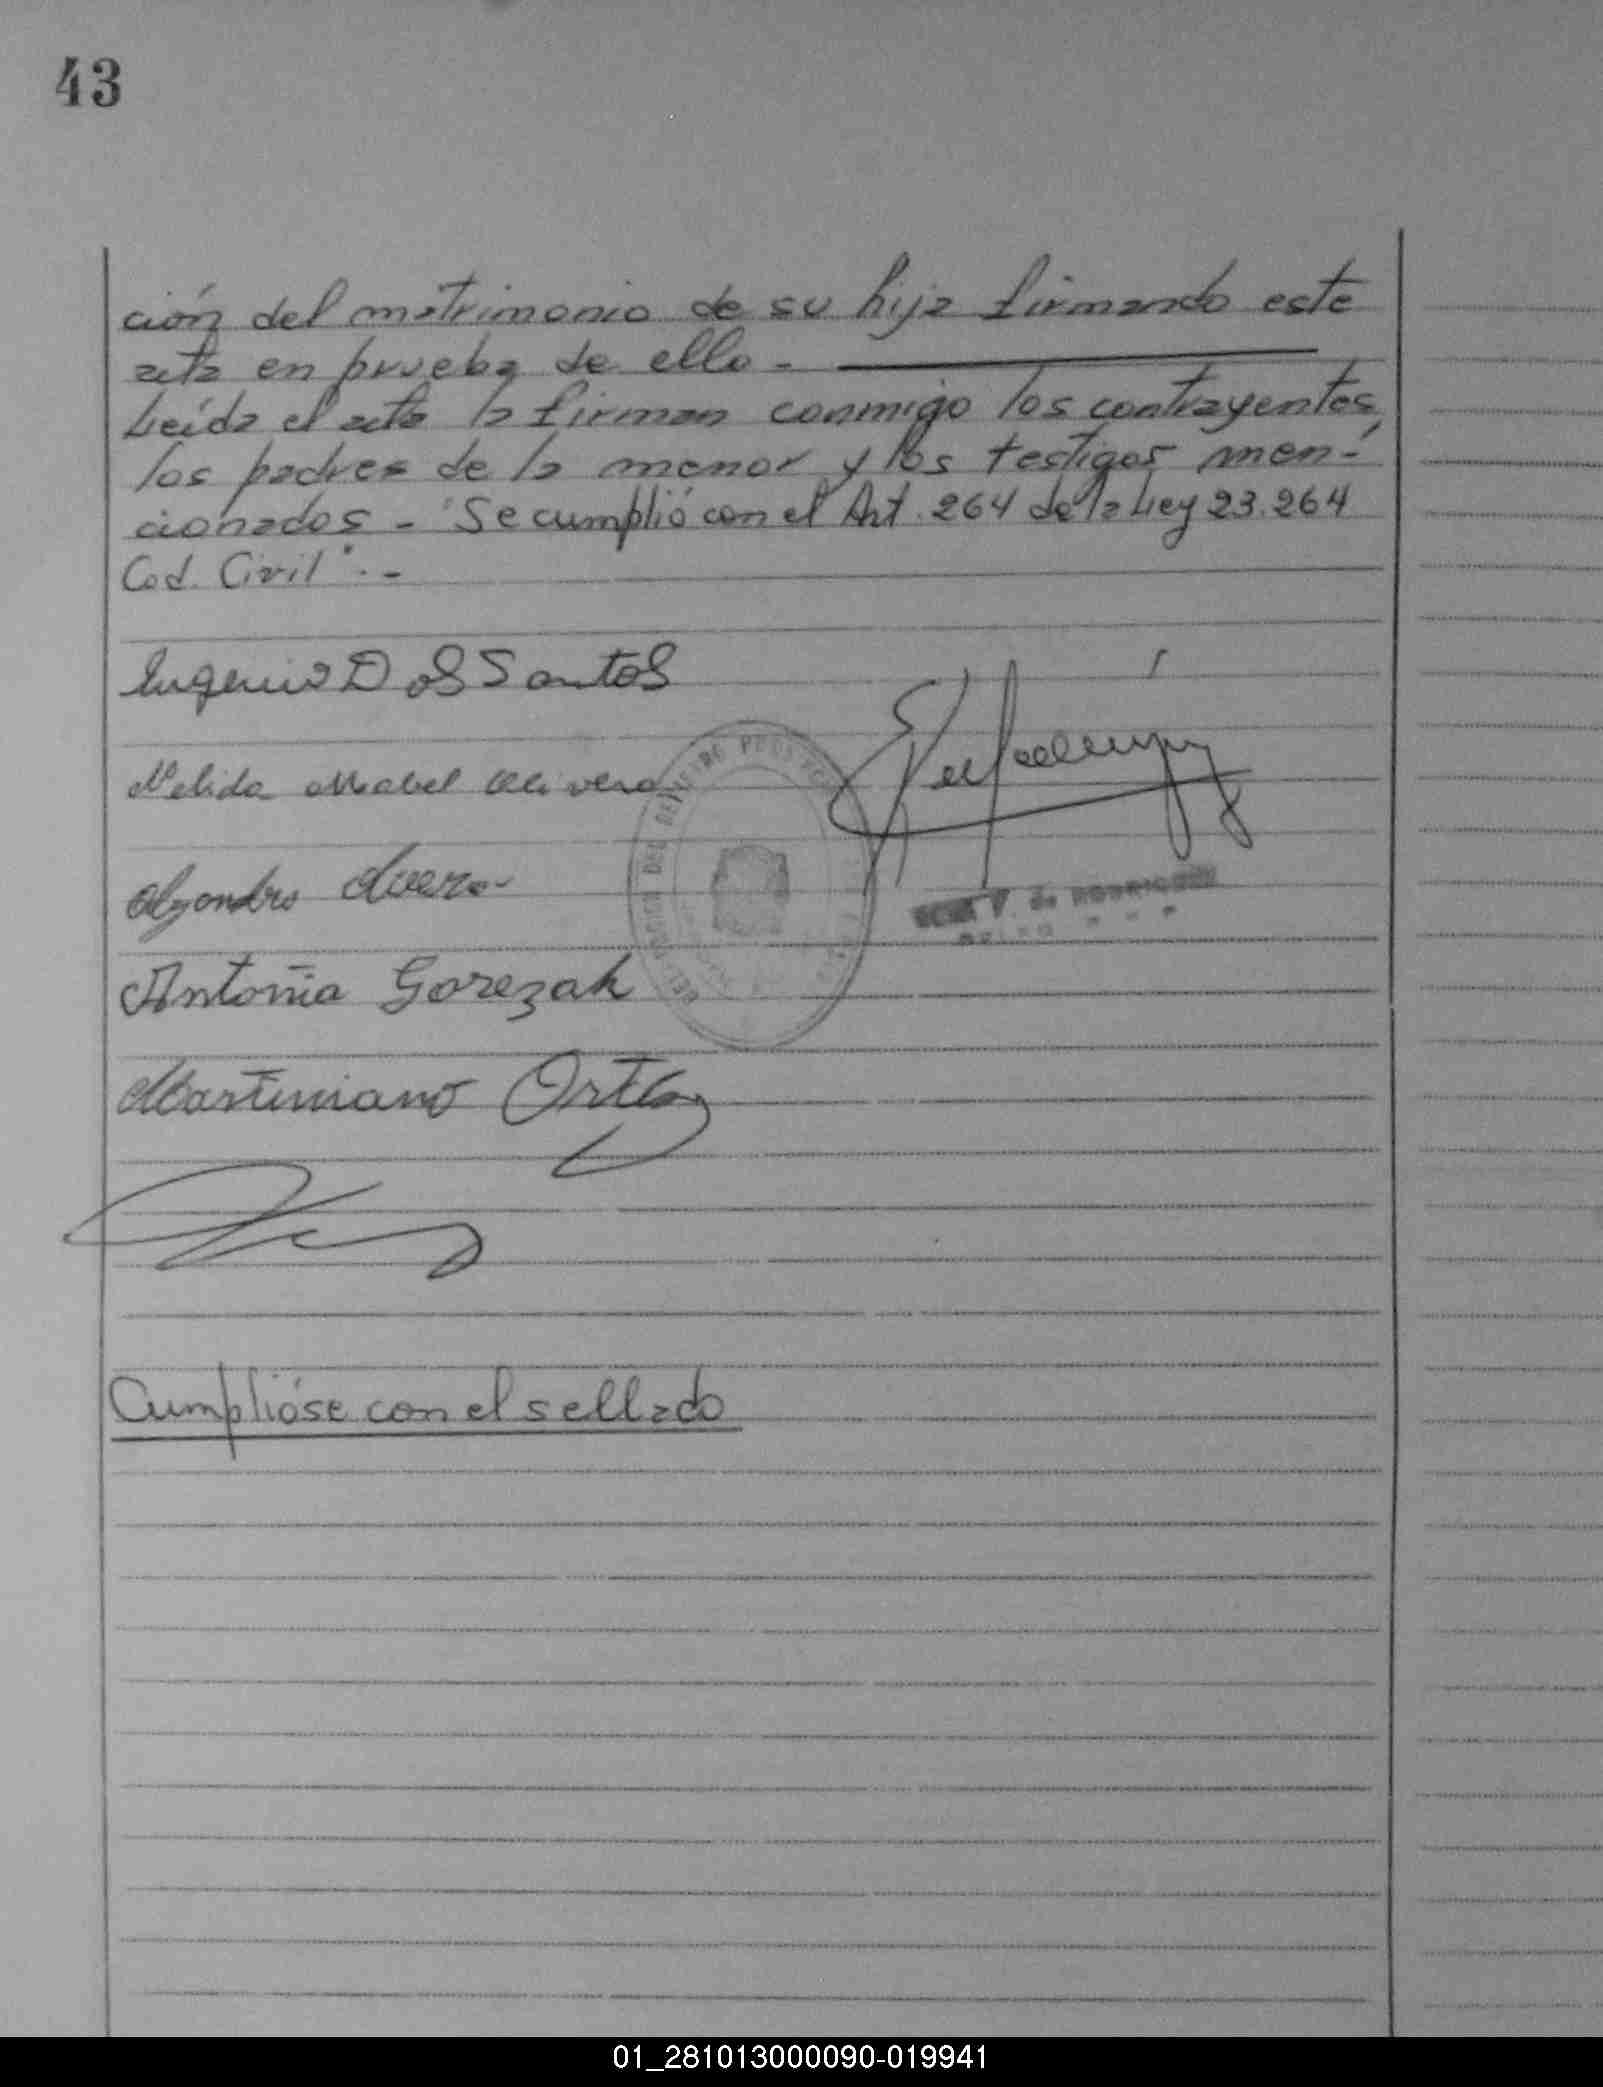 43
ción del matrimonio de su hija firmando este
acta en prueba de ello.-
Leída el acta la firman conmigo los contrayentes,
los padres de la menor y los testigos men-
cionados.- "Se cumplió con el Art. 264 de la Ley 23.264
Cod. Civil".-
Eugenio Dos Santos
Nelida Mabel Olivera
Alejandro
Antonia Gorezak
Martiniano Ortiz
V. de RODRIGUEZ
Cumplióse con el sellado
01_281013000090-019941